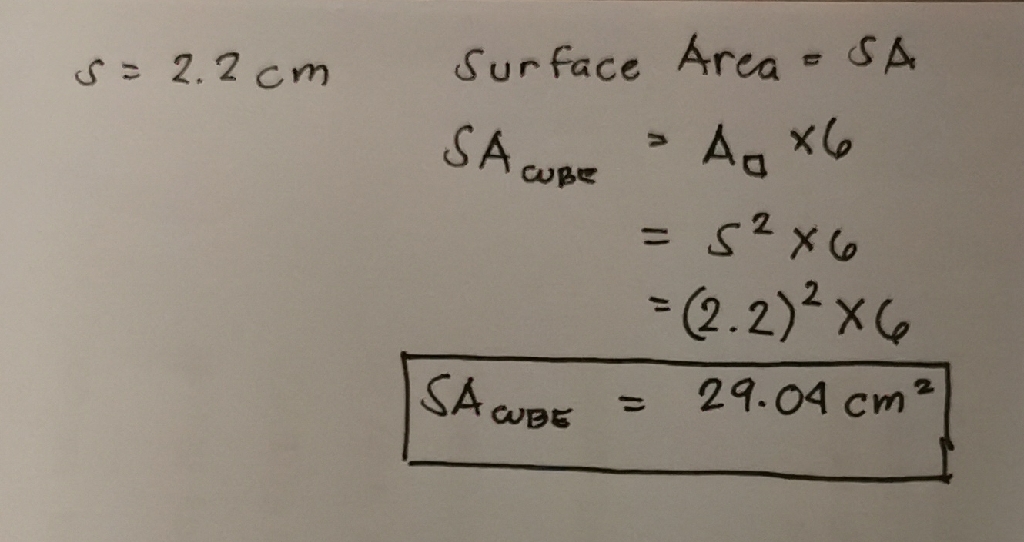 s = 2.2 cm Surface Area = SA
SA CUBE = A□ x6
= s² x6
= (2.2)² x6
SA CUBE = 29.04 cm²